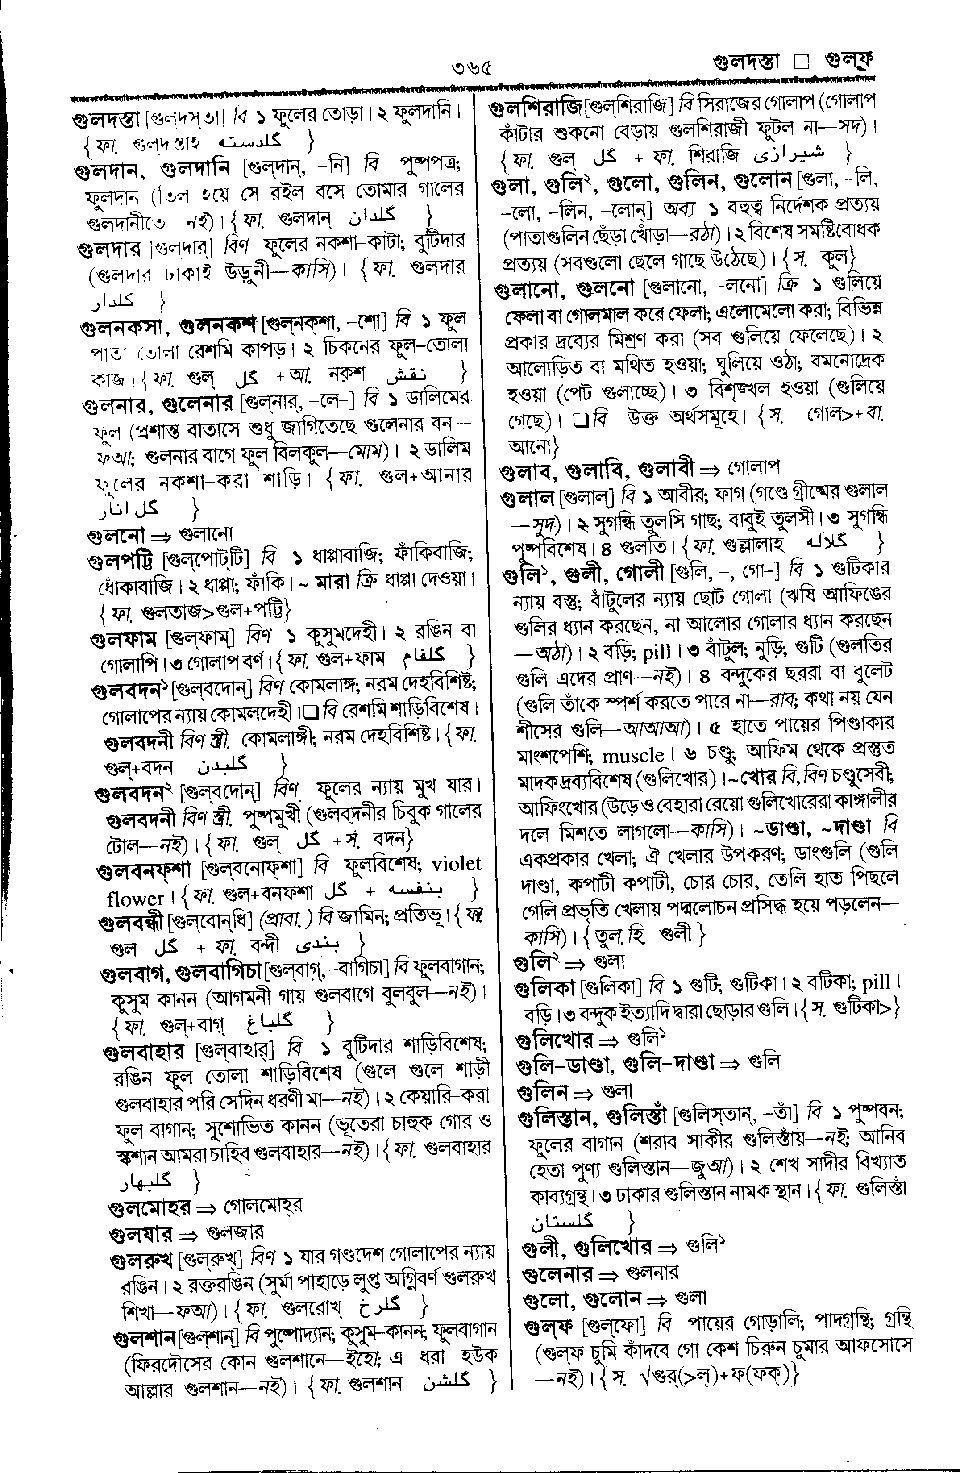 ৩৬৫
গুলদস্তা □ গুল্‌ফ
গুলদস্তা [গুল্‌দস্‌তা] বি ১ ফুলের তোড়া। ২ ফুলদানি।
{ফা. গুলদস্তাহ گلدسته }
গুলদান, গুলদানি [গুল্‌দান, -নি] বি পুষ্পপত্র;
ফুলদান (তিল হয়ে সে রইল বসে তোমার গালের
গুলদানীতে নই)। {ফা. গুলদান্ گلدان }
গুলদার [গুলদার্] বিণ ফুলের নকশা-কাটা; বুটিদার
(গুলদার ঢাকাই উড়ুনী—কাসি)। {ফা. গুলদার
گلدار }
গুলনকসা, গুলনকশ [গুল্‌নকশা, -শো] বি ১ ফুল
পাতা তোলা রেশমি কাপড়। ২ চিকনের ফুল-তোলা
কাজ। {ফা. গুল্ گل + আ. নক্‌শ نقش }
গুলনার, গুলেনার [গুল্‌নার, -লে-] বি ১ ডালিমের
ফুল (প্রশান্ত বাতাসে শুধু জাগিতেছে গুলেনার বন—
ফআ; গুলনার বাগে ফুল বিলকুল—মোম)। ২ ডালিম
ফুলের নকশা-করা শাড়ি। {ফা. গুল+আনার
گل انار }
গুলনো ⇒ গুলানো
গুলপট্টি [গুল্‌পোট্‌টি] বি ১ ধাপ্পাবাজি; ফাঁকিবাজি;
ধোঁকাবাজি। ২ ধাপ্পা; ফাঁকি। ~ মারা ক্রি ধাপ্পা দেওয়া।
{ফা. গুলতাজ>গুল+পট্টি}
গুলফাম [গুল্‌ফাম্] বিণ ১ কুসুমদেহী। ২ রঙিন বা
গোলাপি। ৩ গোলাপ বর্ণ। {ফা. গুল+ফাম گلفام }
গুলবদন১ [গুল্‌বদোন্] বিণ কোমলাঙ্গ; নরম দেহবিশিষ্ট;
গোলাপের ন্যায় কোমলদেহী। □ বি রেশমি শাড়িবিশেষ।
গুলবদনী বিণ স্ত্রী. কোমলাঙ্গী; নরম দেহবিশিষ্ট। {ফা.
গুল্+বদন گلبدن }
গুলবদন২ [গুল্‌বদোন্] বিণ. ফুলের ন্যায় মুখ যার।
গুলবদনী বিণ স্ত্রী. পুষ্পমুখী (গুলবদনীর চিবুক গালের
টোল—নই)। {ফা. গুল্ گل + স. বদন}
গুলবনফ্‌শা [গুল্‌বনোফ্‌শা] বি ফুলবিশেষ; violet
flower। {ফা. গুল+বনফশা گل + بنفسه }
গুলবন্ধী [গুল্‌বোন্‌ধি] (প্রাবা.) বি জামিন; প্রতিভূ। {ফা
গুল گل + ফা. বন্দী بندی }
গুলবাগ, গুলবাগিচা [গুল্‌বাগ্, -বাগিচা] বি ফুলবাগান;
কুসুম কানন (আগমনী গায় গুলবাগে বুলবুল—নই)।
{ফা. গুল্+বাগ্ گلباغ }
গুলবাহার [গুল্‌বাহার্] বি ১ বুটিদার শাড়িবিশেষ;
রঙিন ফুল তোলা শাড়িবিশেষ (গুলে গুলে শাড়ী
গুলবাহার পরি সেদিন ধরণী মা—নই)। ২ কেয়ারি-করা
ফুল বাগান; সুশোভিত কানন (ভূতেরা চাহুক গোর ও
স্কশান আমরা চাহিব গুলবাহার—নই)। {ফা. গুলবাহার
گلبهار }
গুলমোহর ⇒ গোলমোহর
গুলযার ⇒ গুলজার
গুলরুখ [গুল্‌রুখ্] বিণ ১ যার গণ্ডদেশ গোলাপের ন্যায়
রঙিন। ২ রক্তরঙিন (সুর্মা পাহাড়ে লুপ্ত অগ্নিবর্ণ গুলরুখ
শিখা—ফআ)। {ফা. গুলরোখ گلرخ }
গুলশান [গুল্‌শান্] বি পুষ্পোদ্যান; কুসুম-কানন; ফুলবাগান
(ফিরদৌসের কোন গুলশানে—ইহো; এ ধরা হউক
আল্লার গুলশান—নই)। {ফা. গুলশান گلشن }
গুলশিরাজি [গুলশিরাজি] বি সিরাজের গোলাপ (গোলাপ
কাঁটার শুকনো বেড়ায় গুলশিরাজী ফুটল না—সদ)।
{ফা. গুল্ گل + ফা. শিরাজি شیرازی }
গুলা, গুলি২, গুলো, গুলিন, গুলোন [গুলা, -লি,
-লো, -লিন, -লোন্] অব্য ১ বহুত্ব নির্দেশক প্রত্যয়
(পাতাগুলিন ছেঁড়া খোঁড়া—রঠা)। ২ বিশেষ সমষ্টিবোধক
প্রত্যয় (সবগুলো ছেলে গাছে উঠেছে)। {স. কূল}
গুলানো, গুলনো [গুলানো, -লনো] ক্রি ১ গুলিয়ে
ফেলা বা গোলমাল করে ফেলা; এলোমেলো করা; বিভিন্ন
প্রকার দ্রব্যের মিশ্রণ করা (সব গুলিয়ে ফেলেছে)। ২
আলোড়িত বা মথিত হওয়া; ঘুলিয়ে ওঠা; বমনোদ্রেক
হওয়া (পেট গুলাচ্ছে)। ৩ বিশৃঙ্খল হওয়া (গুলিয়ে
গেছে)। □ বি উক্ত অর্থসমূহে। {স. গোল>+বা.
আনো}
গুলাব, গুলাবি, গুলাবী ⇒ গোলাপ
গুলাল [গুলাল্] বি ১ আবীর; ফাগ (গণ্ডে গ্রীষ্মের গুলাল
—সুদ)। ২ সুগন্ধি তুলসি গাছ; বাবুই তুলসী। ৩ সুগন্ধি
পুষ্পবিশেষ। ৪ গুলতি। {ফা. গুল্লালাহ گلاله }
গুলি১, গুলী, গোলী [গুলি, -, গো-] বি ১ গুটিকার
ন্যায় বস্তু; বাঁটুলের ন্যায় ছোট গোলা (ঋষি আফিঙের
গুলির ধ্যান করছেন, না আলোর গোলার ধ্যান করছেন
—অঠা)। ২ বড়ি; pill। ৩ বাঁটুল; নুড়ি; গুটি (গুলতির
গুলি এদের প্রাণ—নই)। ৪ বন্দুকের ছররা বা বুলেট
(গুলি তাঁকে স্পর্শ করতে পারে না—রাব; কথা নয় যেন
শীসের গুলি—আআআ)। ৫ হাতে পায়ের পিণ্ডাকার
মাংশপেশি; muscle। ৬ চণ্ডু; আফিম থেকে প্রস্তুত
মাদকদ্রব্যবিশেষ (গুলিখোর)। ~খোর বি, বিণ চণ্ডুসেবী;
আফিংখোর (উড়ে ও বেহারা রেয়ো গুলিখোরেরা কাঙ্গালীর
দলে মিশতে লাগলো—কাসি)। ~ডাণ্ডা, ~দাণ্ডা বি
একপ্রকার খেলা; ঐ খেলার উপকরণ; ডাংগুলি (গুলি
দাণ্ডা, কপাটী কপাটী, চোর চোর, তেলি হাত পিছলে
গেলি প্রভৃতি খেলায় পদ্মলোচন প্রসিদ্ধ হয়ে পড়লেন—
কাসি)। {তুল. হি. গুলী }
গুলি২ ⇒ গুলা
গুলিকা [গুলিকা] বি ১ গুটি; গুটিকা। ২ বটিকা; pill।
বড়ি। ৩ বন্দুক ইত্যাদি দ্বারা ছোড়ার গুলি। {স. গুটিকা>}
গুলিখোর ⇒ গুলি১
গুলি-ডাণ্ডা, গুলি-দাণ্ডা ⇒ গুলি
গুলিন ⇒ গুলা
গুলিস্তান, গুলিস্তাঁ [গুলিস্‌তান্, -তাঁ] বি ১ পুষ্পবন;
ফুলের বাগান (শরাব সাকীর গুলিস্তাঁয়—নই; আনিব
হেতা পুণ্য গুলিস্তান—জুআ)। ২ শেখ সাদীর বিখ্যাত
কাব্যগ্রন্থ। ৩ ঢাকার গুলিস্তান নামক স্থান। {ফা. গুলিস্তাঁ
گلستان }
গুলী, গুলিখোর ⇒ গুলি১
গুলেনার ⇒ গুলনার
গুলো, গুলোন ⇒ গুলা
গুল্‌ফ [গুল্‌ফো] বি পায়ের গোড়ালি; পাদগ্রন্থি; গ্রন্থি
(গুল্‌ফ চুমি কাঁদবে গো কেশ চিরুন চুমার আফসোসে
—নই)। {স. √গুর্(>ল্)+ফ(ফক্)}